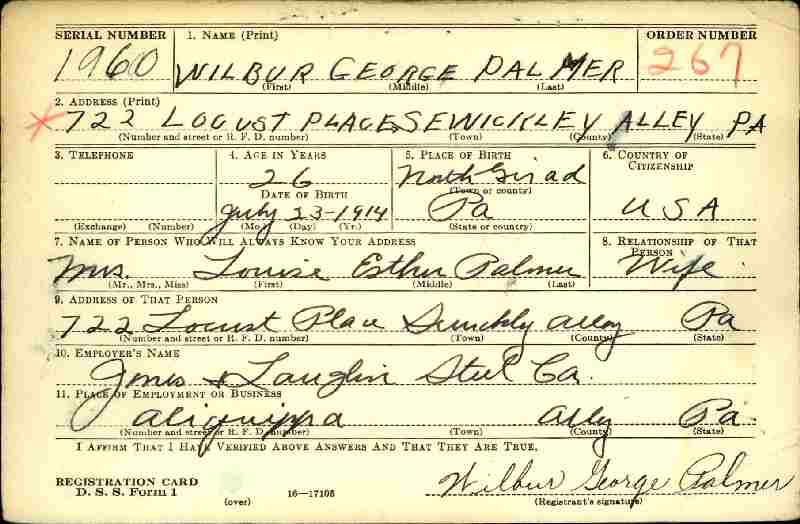 SERIAL NUMBER 1. NAME (Print) ORDER NUMBER
1960 WILBUR GEORGE PALMER 267
(First) (Middle) (Last)
2. ADDRESS (Print)
722 LOCUST PLACE, SEWICKLEY ALLEY PA
(Number and street or R. F. D. number) (Town) (County) (State)
3. TELEPHONE 4. AGE IN YEARS 5. PLACE OF BIRTH 6. COUNTRY OF CITIZENSHIP
26 North Girad
DATE OF BIRTH (Town or county)
July 23-1914 Pa USA
(Exchange) (Number) (Mo.) (Day) (Yr.) (State or country)
7. NAME OF PERSON WHO WILL ALWAYS KNOW YOUR ADDRESS 8. RELATIONSHIP OF THAT PERSON
Mrs. Louise Esther Palmer Wife
(Mr., Mrs., Miss) (First) (Middle) (Last)
9. ADDRESS OF THAT PERSON
722 Locust Place Alley Pa
(Number and street or R. F. D. number) (Town) (County) (State)
10. EMPLOYER'S NAME
Jones & Laughlin Steel Co.
11. PLACE OF EMPLOYMENT OR BUSINESS
Aliquippa Ally Pa.
(Number and street or R. F. D. number) (Town) (County) (State)
I AFFIRM THAT I HAVE VERIFIED ABOVE ANSWERS AND THAT THEY ARE TRUE.
REGISTRATION CARD Wilbur George Palmer
D. S. S. Form 1 (over) 16—17105 (Registrant's signature)